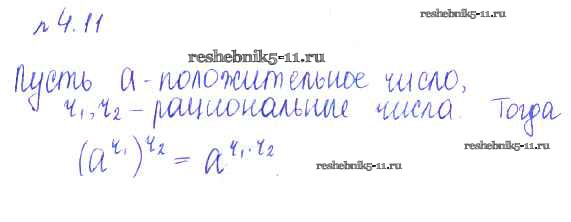 №4.11
reshebnik5-11.ru
reshebnik5-11.ru
Пусть a - положительное число,
r₁, r₂ - рациональные числа. Тогда
reshebnik5-11.ru
(a^r₁)^r₂ = a^r₁·r₂
reshebnik5-11.ru